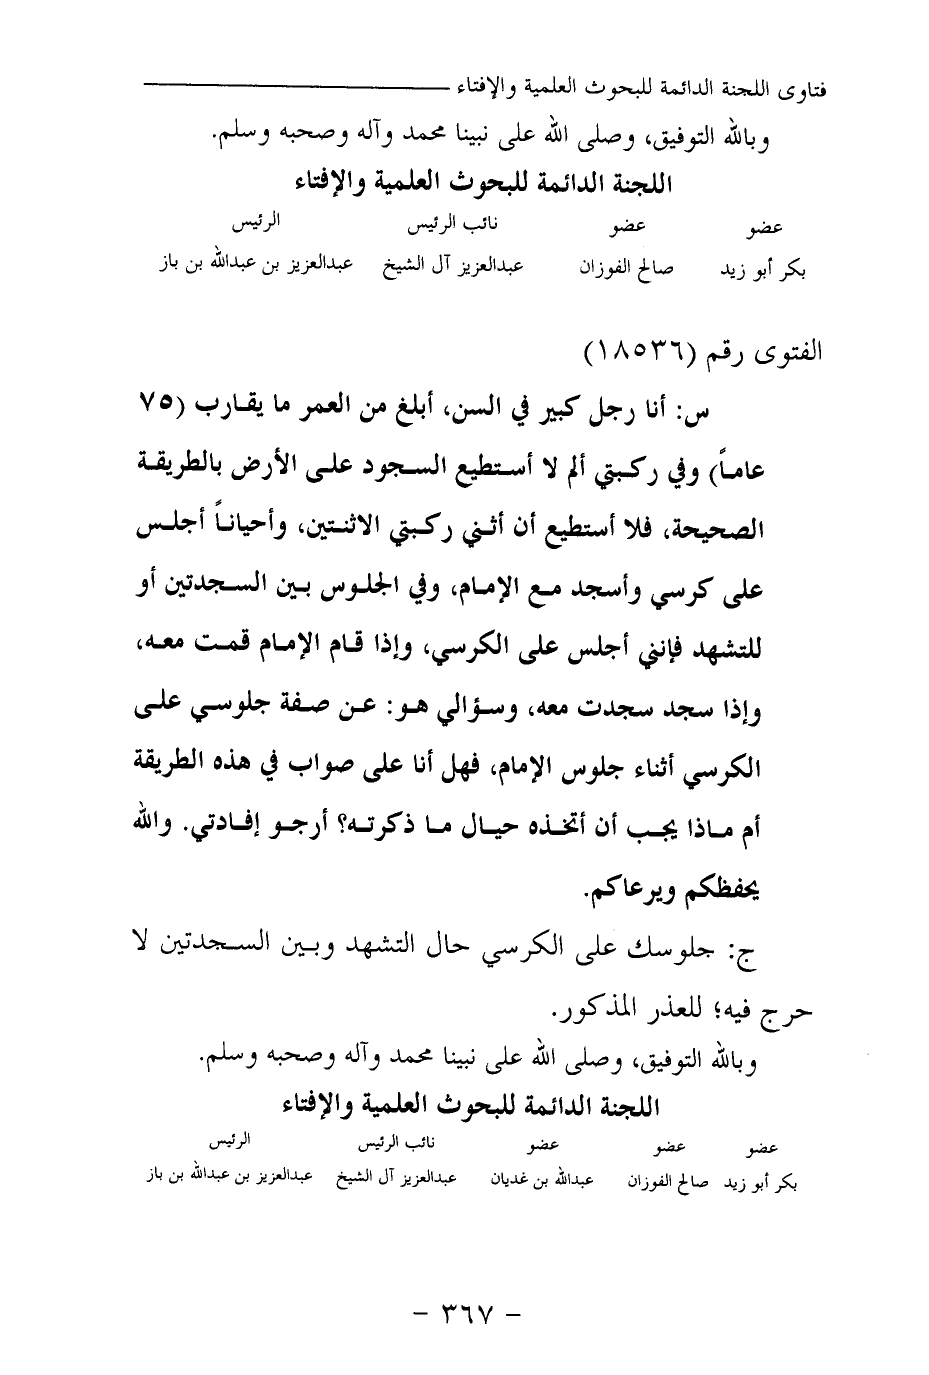 فتاوى اللجنة الدائمة للبحوث العلمية والإفتاء
وبالله التوفيق، وصلى الله على نبينا محمد وآله وصحبه وسلم.
اللجنة الدائمة للبحوث العلمية والإفتاء
عضو عضو نائب الرئيس الرئيس
بكر أبو زيد صالح الفوزان عبدالعزيز آل الشيخ عبدالعزيز بن عبدالله بن باز
الفتوى رقم (١٨٥٣٦)
س: أنا رجل كبير في السن، أبلغ من العمر ما يقارب (٧٥
عاماً) وفي ركبتي ألم لا أستطيع السجود على الأرض بالطريقة
الصحيحة، فلا أستطيع أن أثني ركبتي الاثنتين، وأحياناً أجلس
على كرسي وأسجد مع الإمام، وفي الجلوس بين السجدتين أو
للتشهد فإنني أجلس على الكرسي، وإذا قام الإمام قمت معه،
وإذا سجد سجدت معه، وسؤالي هو: عن صفة جلوسي على
الكرسي أثناء جلوس الإمام، فهل أنا على صواب في هذه الطريقة
أم ماذا يجب أن أتخذه حيال ما ذكرته؟ أرجو إفادتي. والله
يحفظكم ويرعاكم.
ج: جلوسك على الكرسي حال التشهد وبين السجدتين لا
حرج فيه؛ للعذر المذكور.
وبالله التوفيق، وصلى الله على نبينا محمد وآله وصحبه وسلم.
اللجنة الدائمة للبحوث العلمية والإفتاء
عضو عضو عضو نائب الرئيس الرئيس
بكر أبو زيد صالح الفوزان عبدالله بن غديان عبدالعزيز آل الشيخ عبدالعزيز بن عبدالله بن باز
– ٣٦٧ –